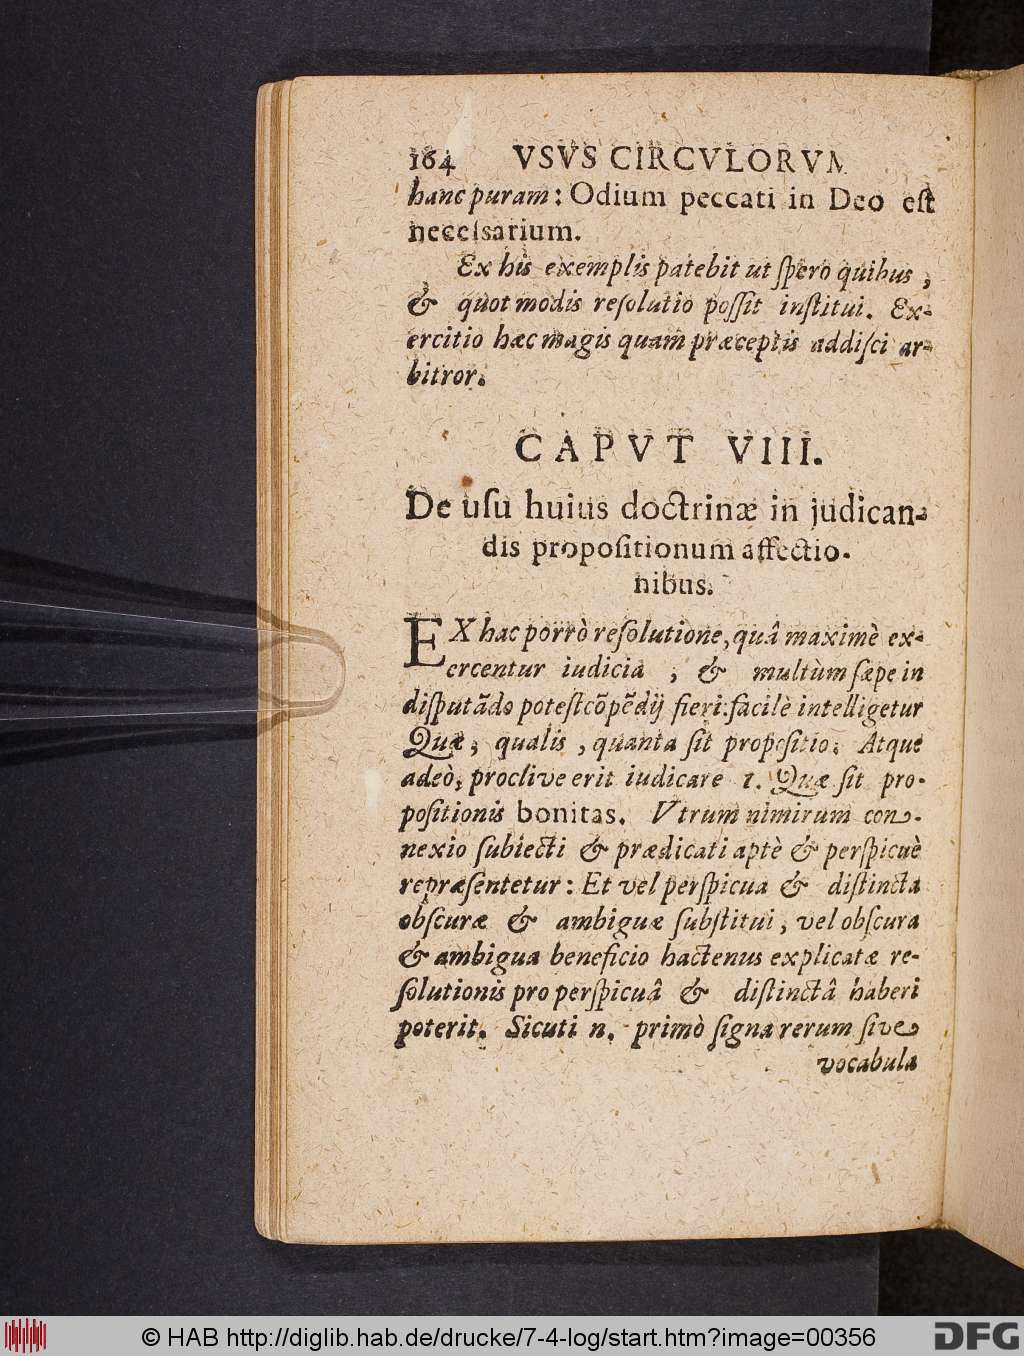 164 VSVS CIRCVLORVM
hanc puram: Odium peccati in Deo est
necessarium.
Ex his exemplis patebit ut spero quibus,
& quot modis resolutio possit institui. Ex-
ercitio hæc magis quam præceptis addisci ar-
bitror.
CAPVT VIII.
De usu huius doctrinæ in judican-
dis propositionum affectio-
nibus.
EX hac porrò resolutione, quâ maximè ex-
ercentur iudicia, & multùm sæpe in
disputãdo potest cõpẽdij fieri: facilè intelligetur
Quæ, qualis, quanta sit propositio. Atque
adeò, proclive erit iudicare 1. Quæ sit pro-
positionis bonitas. Vtrum nimirum con-
nexio subiecti & prædicati aptè & perspicuè
repræsentetur: Et vel perspicua & distincta
obscuræ & ambiguæ substitui, vel obscura
& ambigua beneficio hactenus explicatæ re-
solutionis pro perspicuâ & distinctâ haberi
poterit. Sicuti n. primò signa rerum sive
vocabula
© HAB http://diglib.hab.de/drucke/7-4-log/start.htm?image=00356
DFG